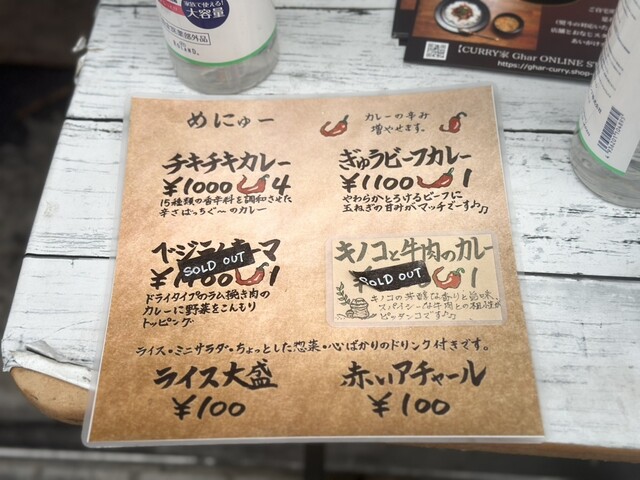 家族で使える!
大容量
医薬部外品
【CURRY家 Ghar ONLINE ST
https://ghar-curry.shop
めにゅー
カレーの辛み
増やせます。
チキチキカレー
¥1000 4
15種類の香辛料を調和させた
辛さばっちぐ〜のカレー
ぎゅうビーフカレー
¥1100 1
やわらかとろけるビーフに
玉ねぎの甘みがマッチでーす♪♪
SOLD OUT
1
ドライタイプのラム挽き肉の
カレーに野菜をこんもり
トッピング
キノコと牛肉のカレー
SOLD OUT
1
キノコの芳醇な香りと旨味、
スパイシーな牛肉との相性が
ピッタンコです♪♪
ライス・ミニサラダ・ちょっとした惣菜・心ばかりのドリンク付きです。
ライス大盛
¥100
赤いアチャール
¥100